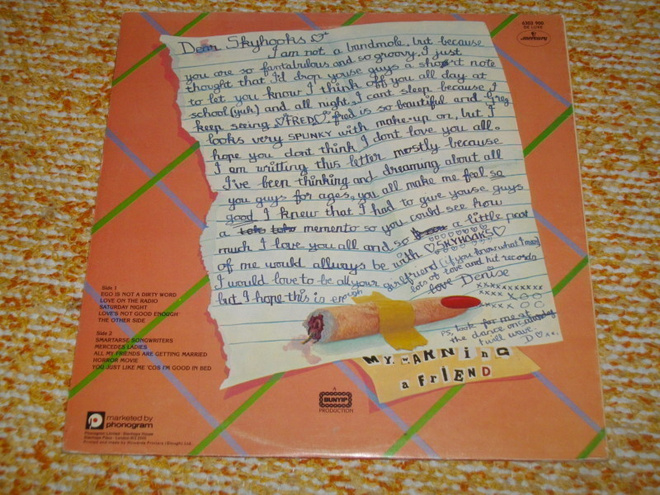 Dear Skyhooks
I am not a bandmole, but because
you are so fantabulous and so groovy, I just
thought that I'd drop youse guys a short note
to let you know I think off you all day at
school (yuk) and all night. I cant sleep because I
keep seeing "FRED". Fred is so beautiful and Greg
looks very SPUNKY with make-up on, but I
hope you dont think I dont love you all.
I am writting this letter mostly because
I've been thinking and dreaming about all
you guys for ages, you all make me feel so
good I knew that I had to give youse guys
a memento so you could see how
much I love you all and so a little part
of me would allways be with SKYHOOKS
I would love to be all your girlfriend (if you know what I mean)
but I hope this is enough
lots of love and hit records
Love Denise
xxxxxxxxxx
xxxxxoo
xxxxooo
P.S. look for me at
the dance on
I will wave.
D
MY WARNING
a FRIEND
Side 1
EGO IS NOT A DIRTY WORD
LOVE ON THE RADIO
SATURDAY NIGHT
LOVE'S NOT GOOD ENOUGH
THE OTHER SIDE
Side 2
SMARTARSE SONGWRITERS
MERCEDES LADIES
ALL MY FRIENDS ARE GETTING MARRIED
HORROR MOVIE
YOU JUST LIKE ME 'COS I'M GOOD IN BED
A
BUNYIP
PRODUCTION
marketed by
phonogram
mercury